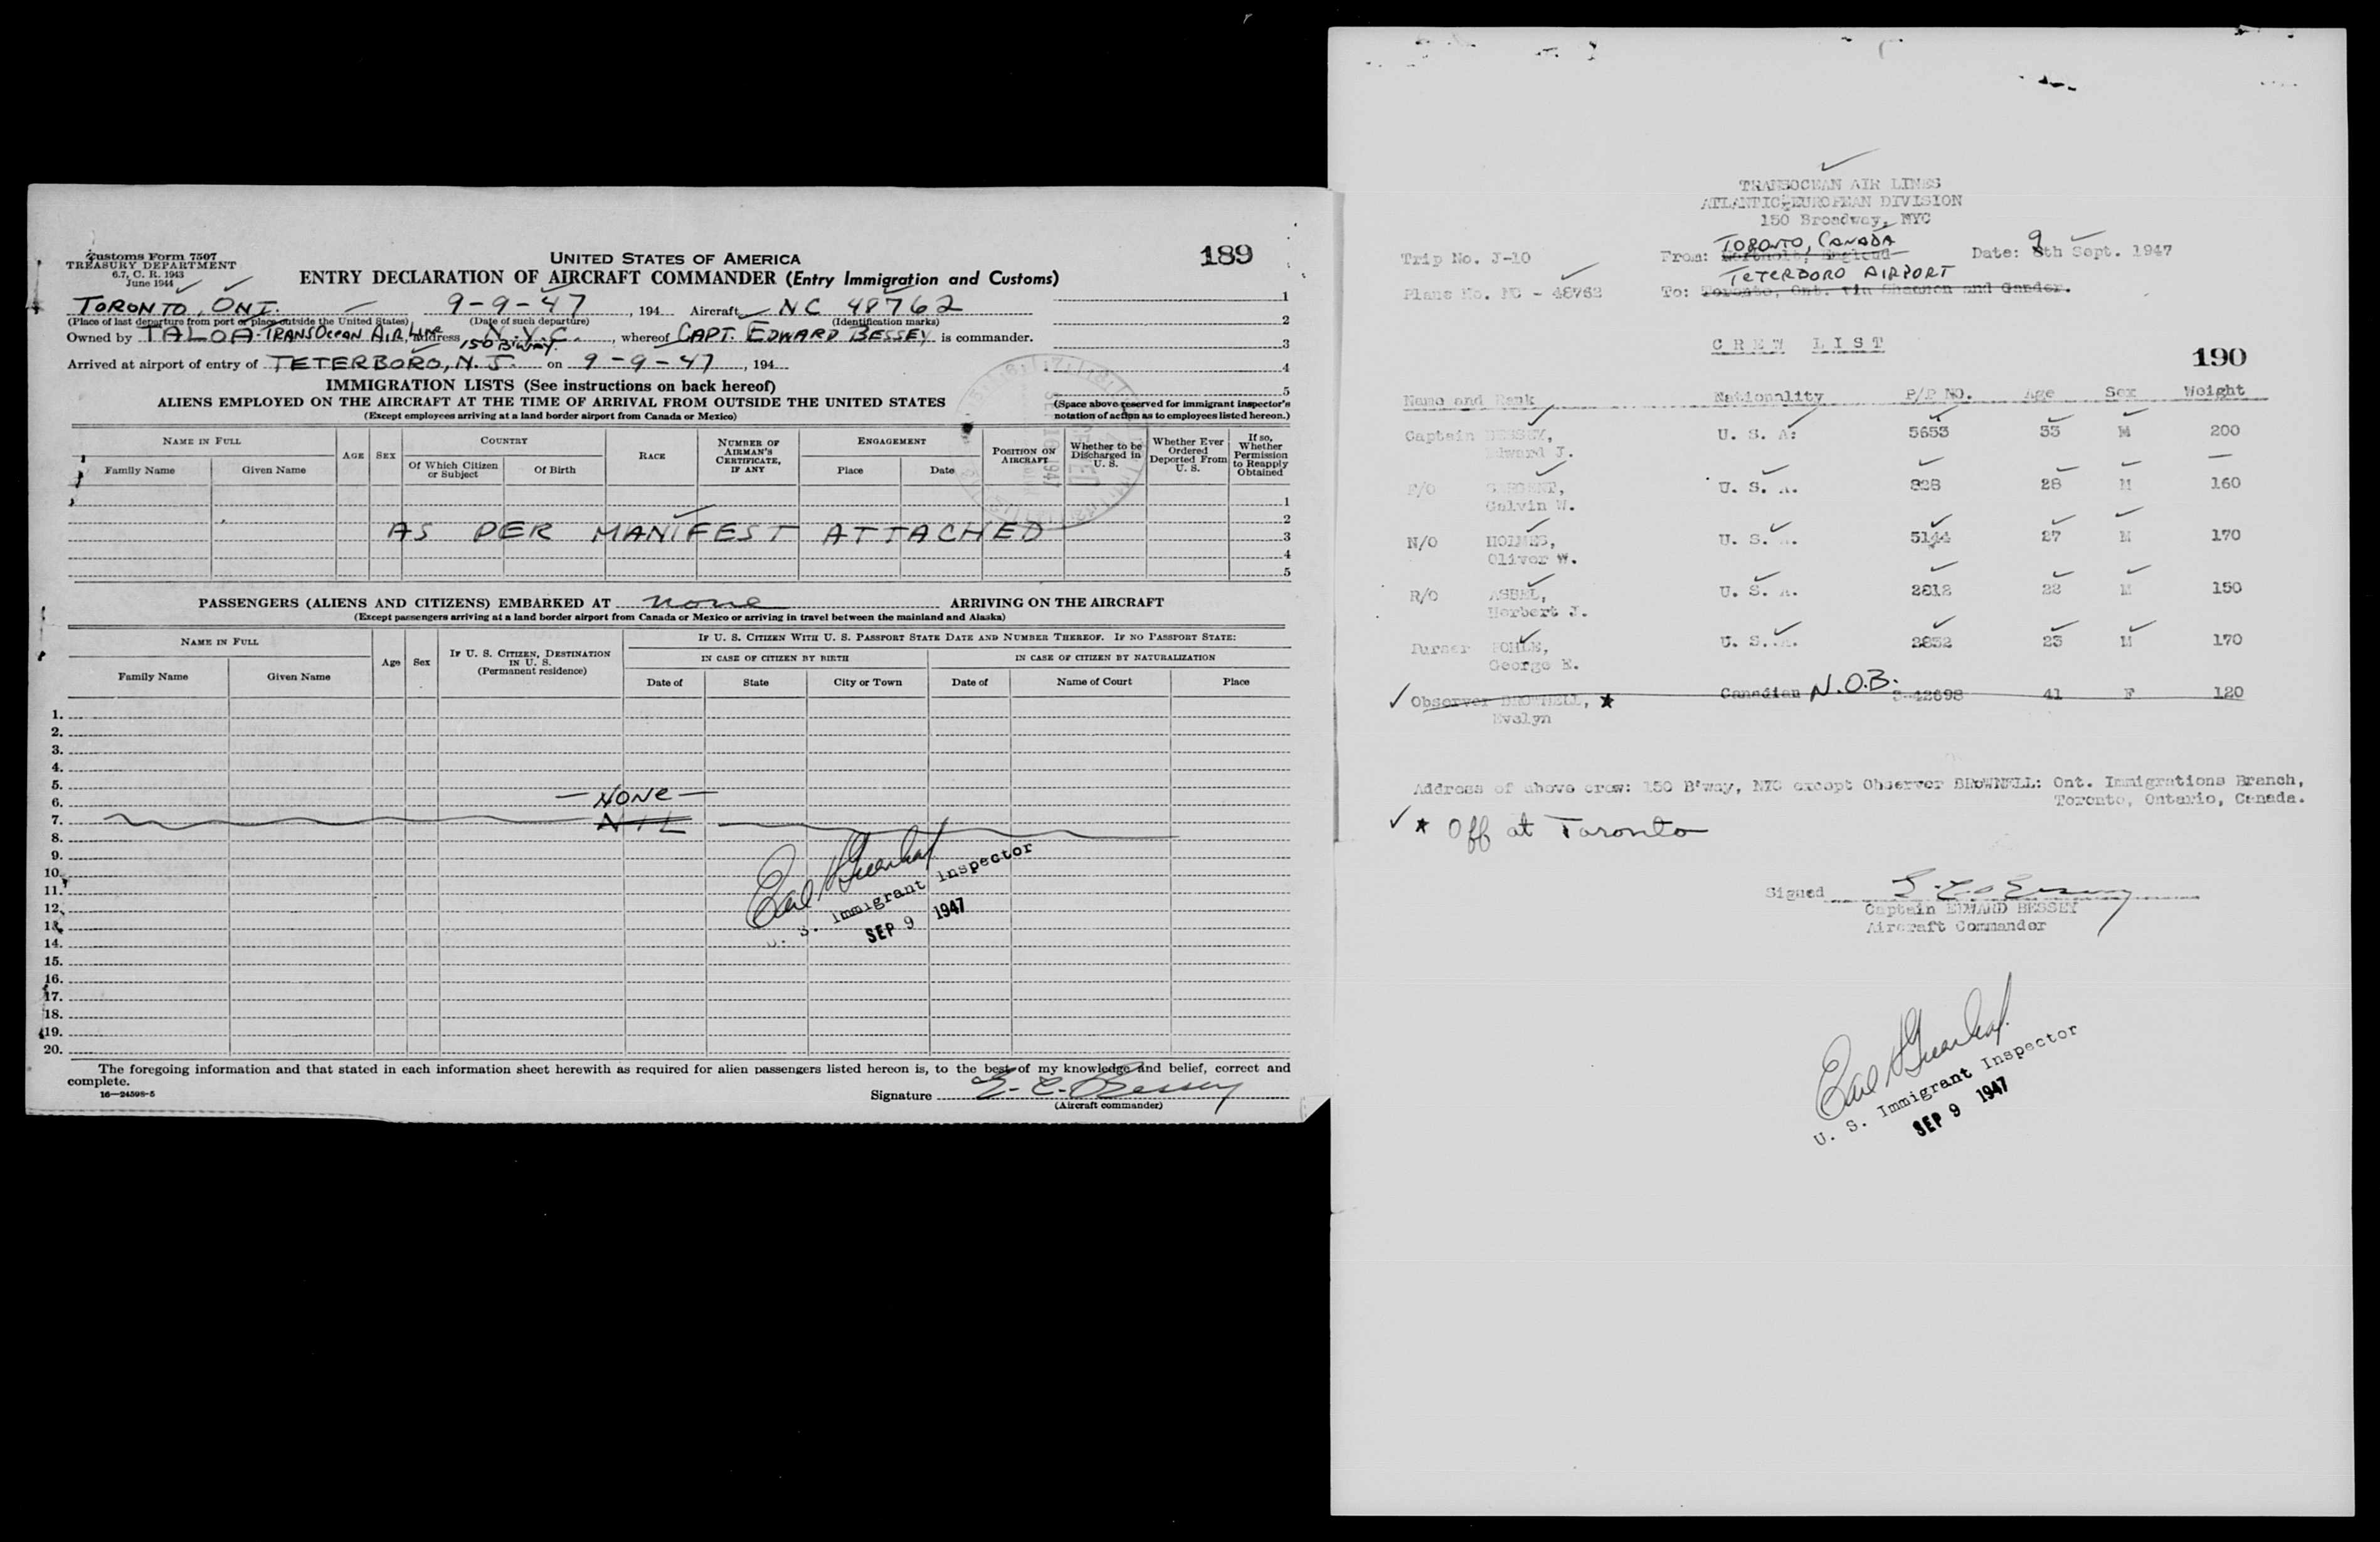 Customs Form 7507
TREASURY DEPARTMENT
6.7, C. R. 1943
June 1944
UNITED STATES OF AMERICA
189
ENTRY DECLARATION OF AIRCRAFT COMMANDER (Entry Immigration and Customs)
TORONTO, ONT. 9-9-47, 194 Aircraft NC 48762
(Place of last departure from port or place outside the United States) (Date of such departure) (Identification marks)
Owned by TALOA-TRANSOCEAN AIR LINE, address N.Y.C. 150 B'WAY., whereof CAPT. EDWARD BESSEY is commander.
Arrived at airport of entry of TETERBORO, N.J. on 9-9-47, 194
1
2
3
4
5
IMMIGRATION LISTS (See instructions on back hereof)
ALIENS EMPLOYED ON THE AIRCRAFT AT THE TIME OF ARRIVAL FROM OUTSIDE THE UNITED STATES
(Except employees arriving at a land border airport from Canada or Mexico)
(Space above reserved for immigrant inspector's
notation of action as to employees listed hereon.)
NAME IN FULL
Family Name
Given Name
AGE
SEX
COUNTRY
Of Which Citizen or Subject
Of Birth
RACE
NUMBER OF AIRMAN'S CERTIFICATE, IF ANY
ENGAGEMENT
Place
Date
POSITION ON AIRCRAFT
Whether to be Discharged in U. S.
Whether Ever Ordered Deported From U. S.
If so, Whether Permission to Reapply Obtained
1
2
AS PER MANIFEST ATTACHED 3
4
5
PASSENGERS (ALIENS AND CITIZENS) EMBARKED AT none ARRIVING ON THE AIRCRAFT
(Except passengers arriving at a land border airport from Canada or Mexico or arriving in travel between the mainland and Alaska)
NAME IN FULL
Family Name
Given Name
Age
Sex
IF U. S. CITIZEN, DESTINATION IN U. S.
(Permanent residence)
IF U. S. CITIZEN WITH U. S. PASSPORT STATE DATE AND NUMBER THEREOF. IF NO PASSPORT STATE:
IN CASE OF CITIZEN BY BIRTH
IN CASE OF CITIZEN BY NATURALIZATION
Date of
State
City or Town
Date of
Name of Court
Place
1.
2.
3.
4.
5.
6. — NONE —
7. NIL
8.
9.
10.
11.
12.
13.
14.
15.
16.
17.
18.
19.
20.
U. S. Immigrant Inspector
SEP 9 1947
The foregoing information and that stated in each information sheet herewith as required for alien passengers listed hereon is, to the best of my knowledge and belief, correct and
complete.
16—24598-5
Signature E. C. Bessey
(Aircraft commander)
TRANSOCEAN AIR LINES
ATLANTIC-EUROPEAN DIVISION
150 Broadway, NYC
TORONTO, CANADA
Trip No. J-10 From: Northolt, England Date: 9 8th Sept. 1947
TETERBORO AIRPORT
Plane No. NC - 48762 To: Toronto, Ont. via Shannon and Gander.
CREW LIST
190
Name and Rank Nationality P/P NO. Age Sex Weight
Captain BESSEY, U. S. A. 5653 33 M 200
Edward J.
F/O SARGENT, U. S. A. 328 28 M 160
Calvin W.
N/O HOLMES, U. S. A. 5144 27 M 170
Oliver W.
R/O ASBEL, U. S. A. 2812 22 M 150
Herbert J.
Purser POHLE, U. S. A. 2852 23 M 170
George E.
Observer BROWNELL, ★ Canadian N.O.B. 3-42698 41 F 120
Evelyn
Address of above crew: 150 B'way, NYC except Observer BROWNELL: Ont. Immigrations Branch,
Toronto, Ontario, Canada.
★ Off at Toronto
Signed E. C. Bessey
Captain EDWARD BESSEY
Aircraft Commander
U. S. Immigrant Inspector
SEP 9 1947